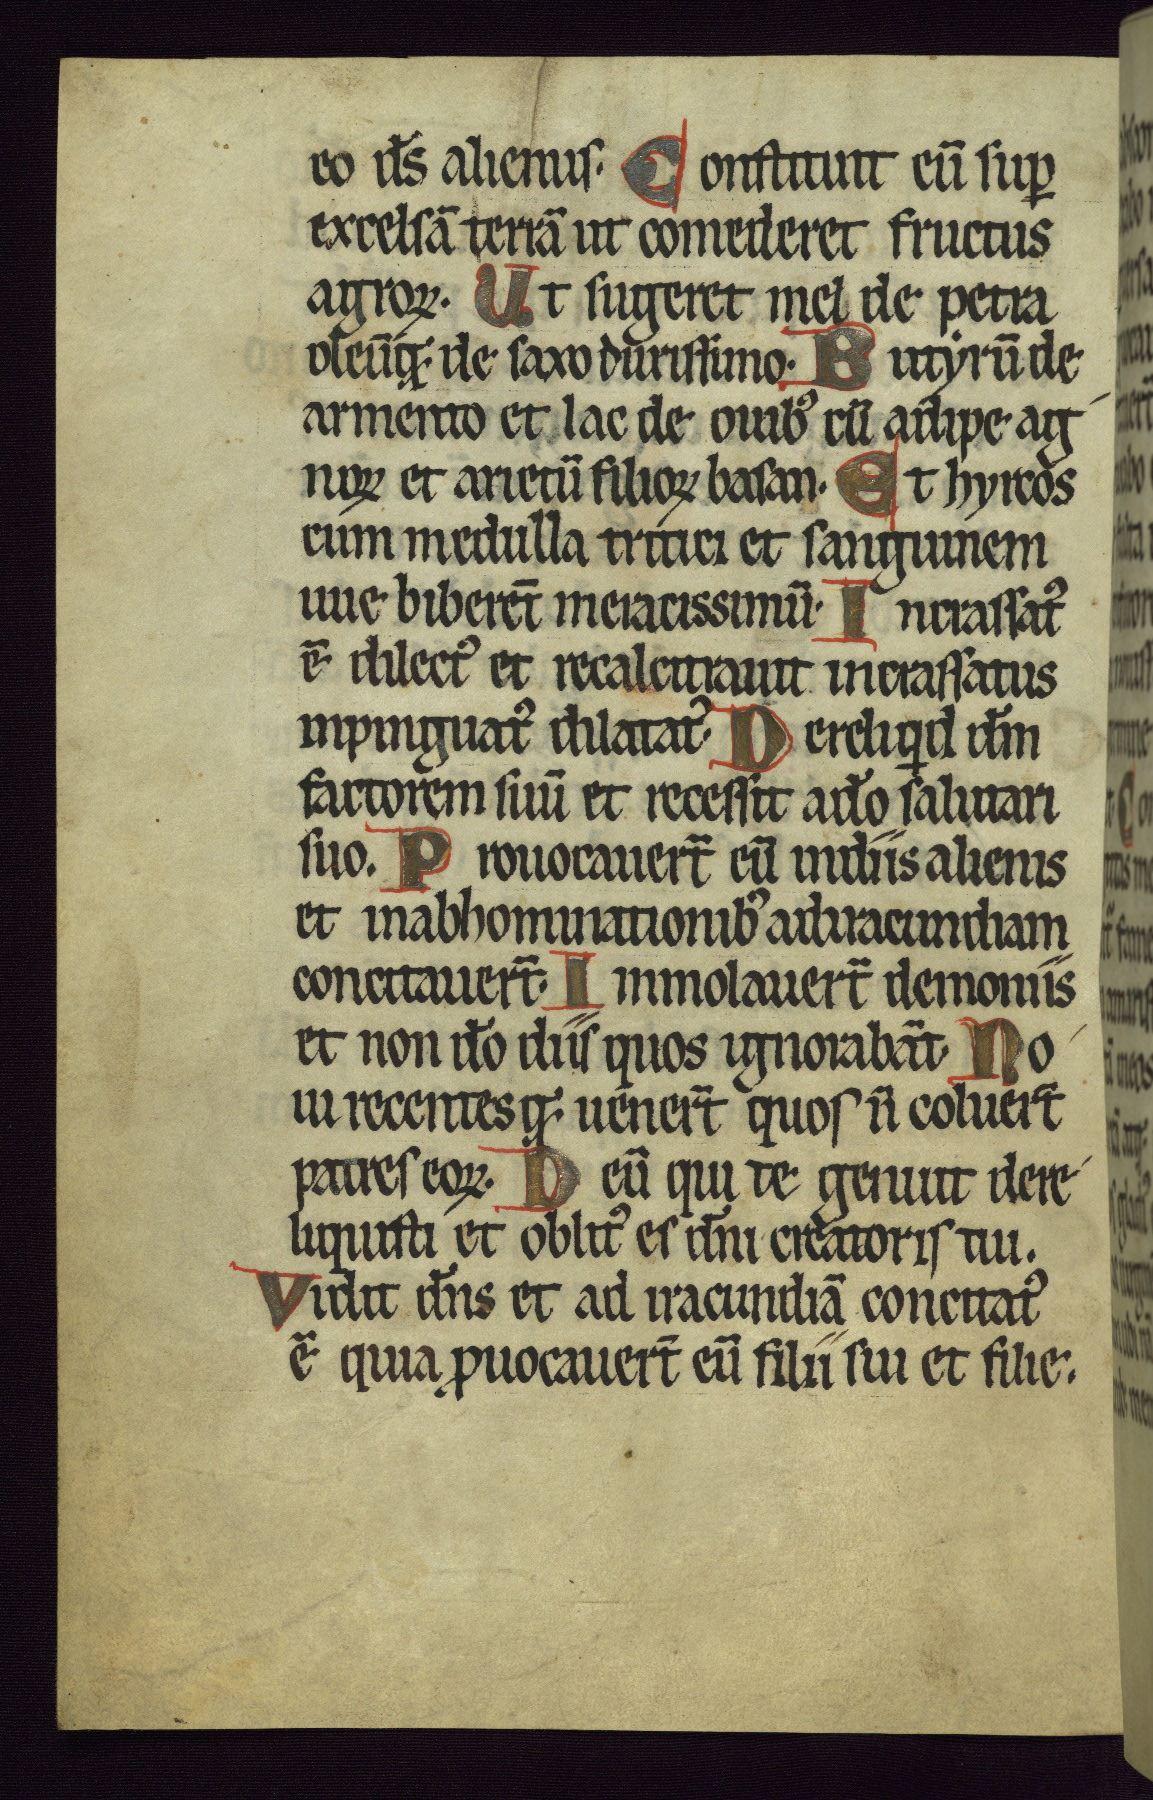 eo ds̄ alienus. Constituit eū sup̲
excelsā terrā ut comederet fructus
agroꝝ. Ut sugeret mel de petra
oleūq; de saxo durissimo. Butyrū de
armento et lac de ouibꝰ cū adipe ag
noꝝ et arietū filioꝝ basan. Et hyrcos
cum medulla tritici et sanguinem
uue biberet̄ meracissimū. Incrassatꝰ
ē dilectꝰ et recalcitrauit incrassatus
inpinguatꝰ dilatatꝰ. Dereliqid dm̄
factorem suū et recessit a do̅ salutari
suo. Prouocauert̄ eū in diis alienis
et in abhominationibꝰ ad iracundiam
concitauert̄. Immolauert̄ demoniis
et non do̅ diis quos ignorabāt. No
ui recentesq; uenert̄ quos n̄ coluert̄
patres eoꝝ. Deū qui te genuit dere
liquisti et oblitꝰ es dn̄i creatoris tui.
Vidit dn̄s et ad iracundiā concitatꝰ
ē quia ꝓuocauert̄ eū filii sui et filie.